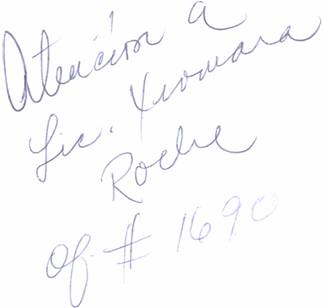 Atención a
Lic. Xiomara
Roche
of. # 1690